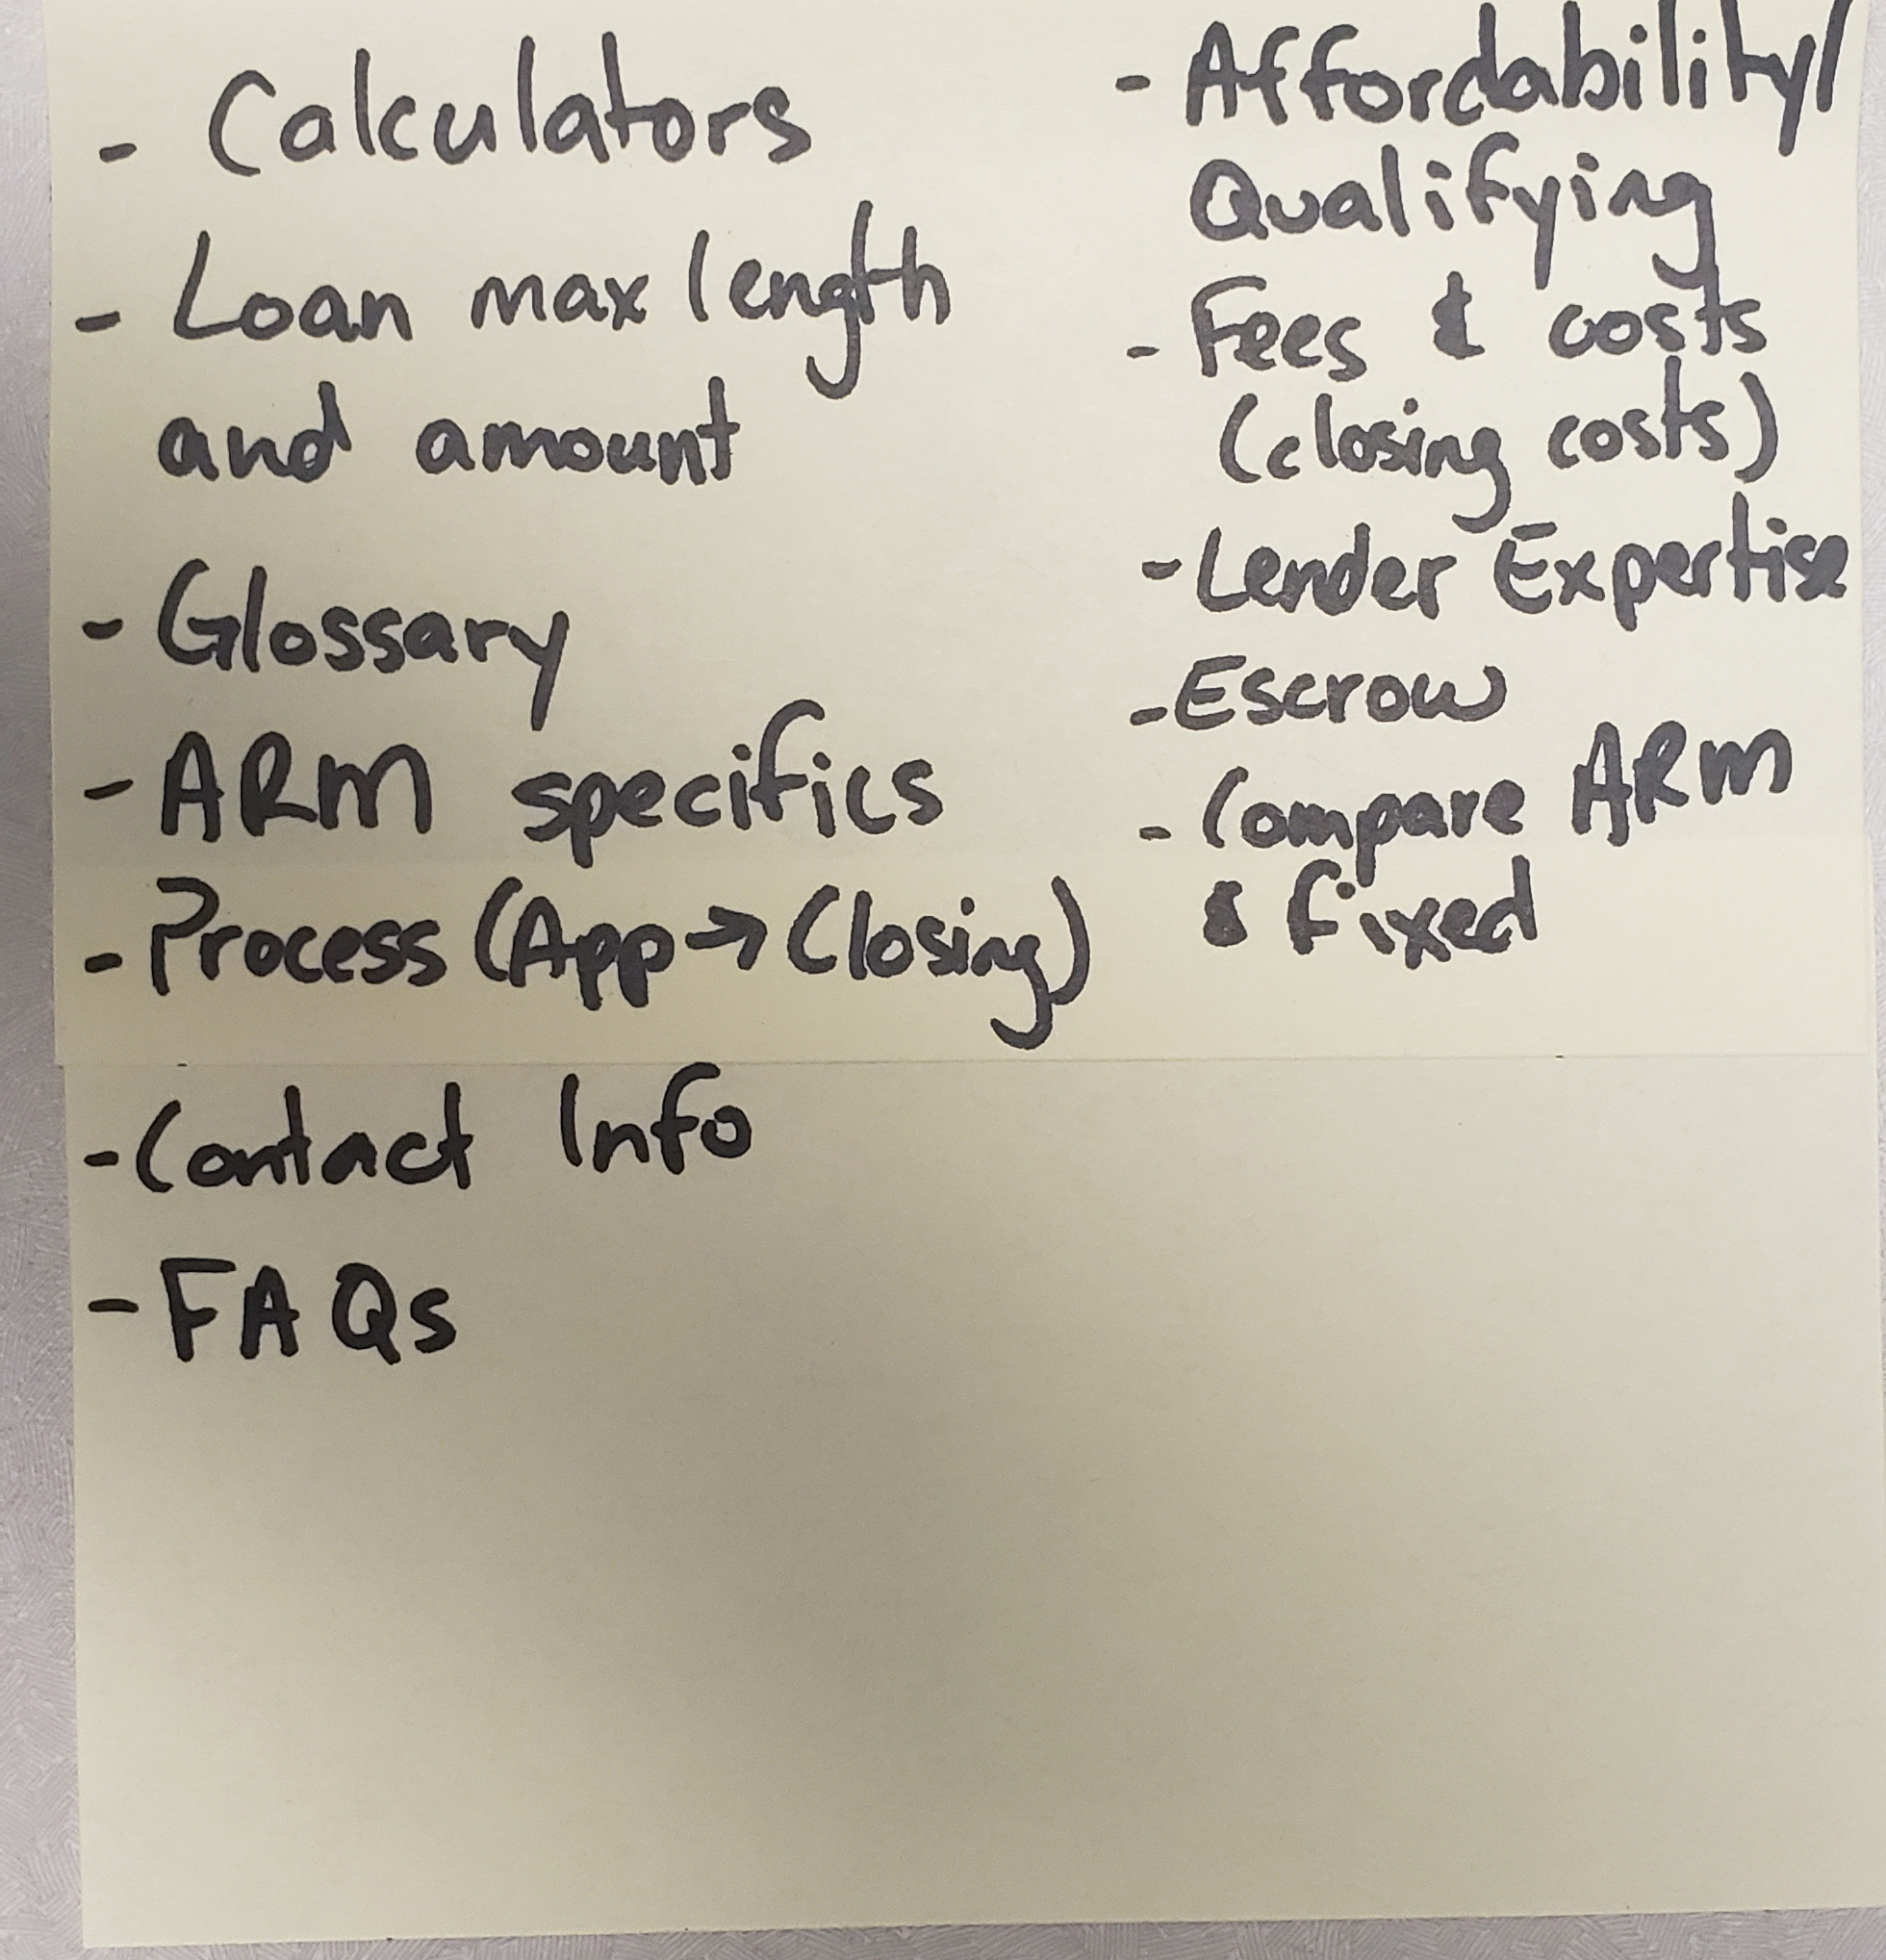 - Calculators
- Loan max length
and amount
- Glossary
- ARM specifics
- Process (App → Closing)
- Contact Info
- FAQs
- Affordability/
Qualifying
- Fees & costs
(closing costs)
- Lender Expertise
- Escrow
- Compare ARM
& fixed